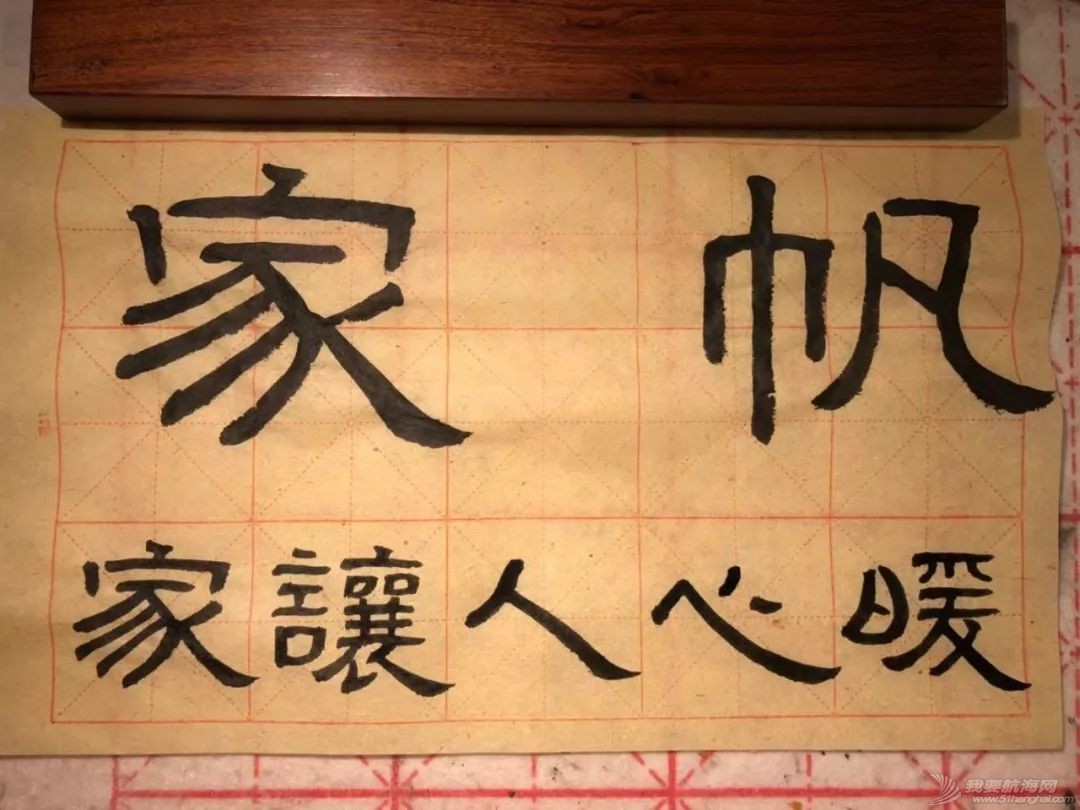 家 帆
家讓人心暖
我要航海网
www.51hanghai.com